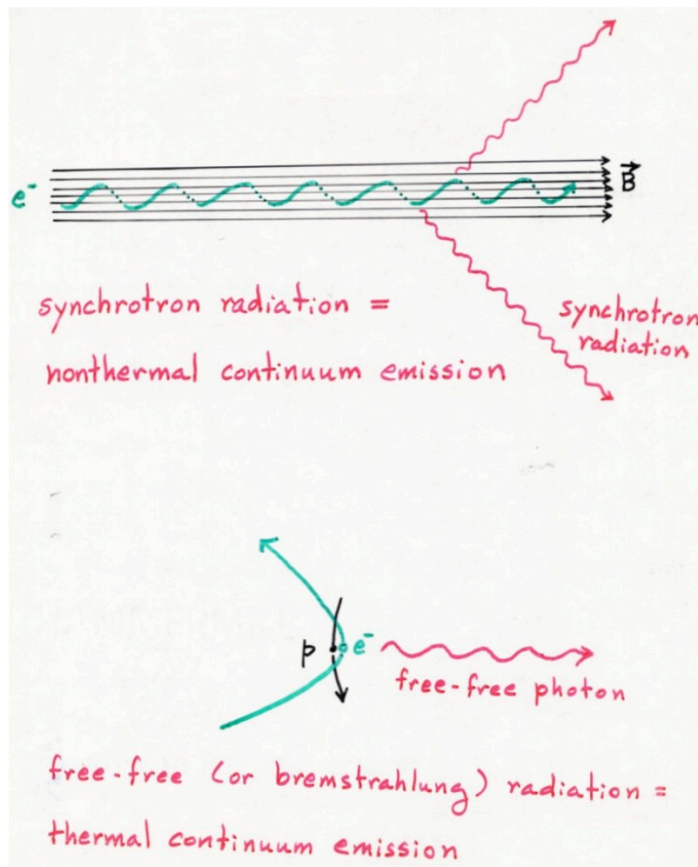 e⁻
B⃗
synchrotron radiation =
nonthermal continuum emission
synchrotron
radiation
p
e⁻
free-free photon
free-free (or bremstrahlung) radiation =
thermal continuum emission